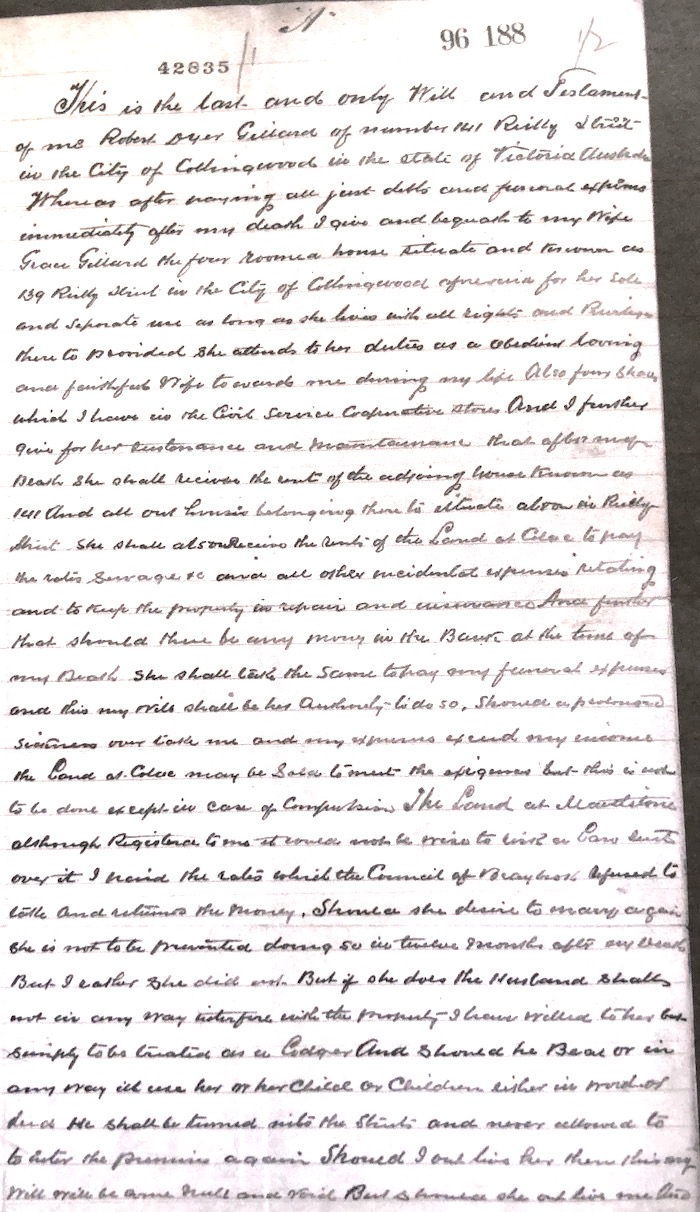 "A"
96 188
1/2
42835
This is the last and only Will and Testament
of me Robert Dyer Gillard of number 141 Reilly Street
in the City of Collingwood in the state of Victoria Australia
Whereas after paying all just debts and funeral expenses
immediately after my death I give and bequath to my Wife
Grace Gillard the four roomed house situate and known as
139 Reilly Street in the City of Collingwood aforesaid for her sole
and seperate use as long as she lives with all rights and
there to provided she attends to her duties as a obedient loving
and faithfull Wife towards me during my life Also four Shares
which I have in the Civil Service Cooperative Stores And I further
give for her sustenance and maintainance that after my
Death she shall recieve the rent of the adjoing house known as
141 And all out houses belonging there to situate above in Reilly
Street She shall also Receive the rents of the Land at Colac to pay
the rates Sewage &c and all other incidental expenses relating
and to keep the property in repair and insurance And further
that should there be any money in the Bank at the time of
my Death She shall take the same to pay my funeral expenses
and this my will shall be her Authority to do so. Should a prolonged
Sickness over take me and my expenses exceed my income
the Land at Colac may be Sold to meet the exigences but this is not
to be done except in case of Compulsion The Land at Maidstone
although Registered to me it would not be wise to risk a Law suit
over it I paid the rates which the Council of Braybrook refused to
take and returned the money. Should she desire to marry again
She is not to be prevented doing so in twelve months after my Death
But I rather She did not. But if she does the Husband shall
not in any way interfere with the property I have willed to her but
simply to be treated as a Lodger And should he Beat or in
any way ill use her or her Child or Children either in word or
deed He shall be turned into the Streets and never allowed to
to enter the premises again Should I out live her then this my
Will will be come Null and void But should she out live me And